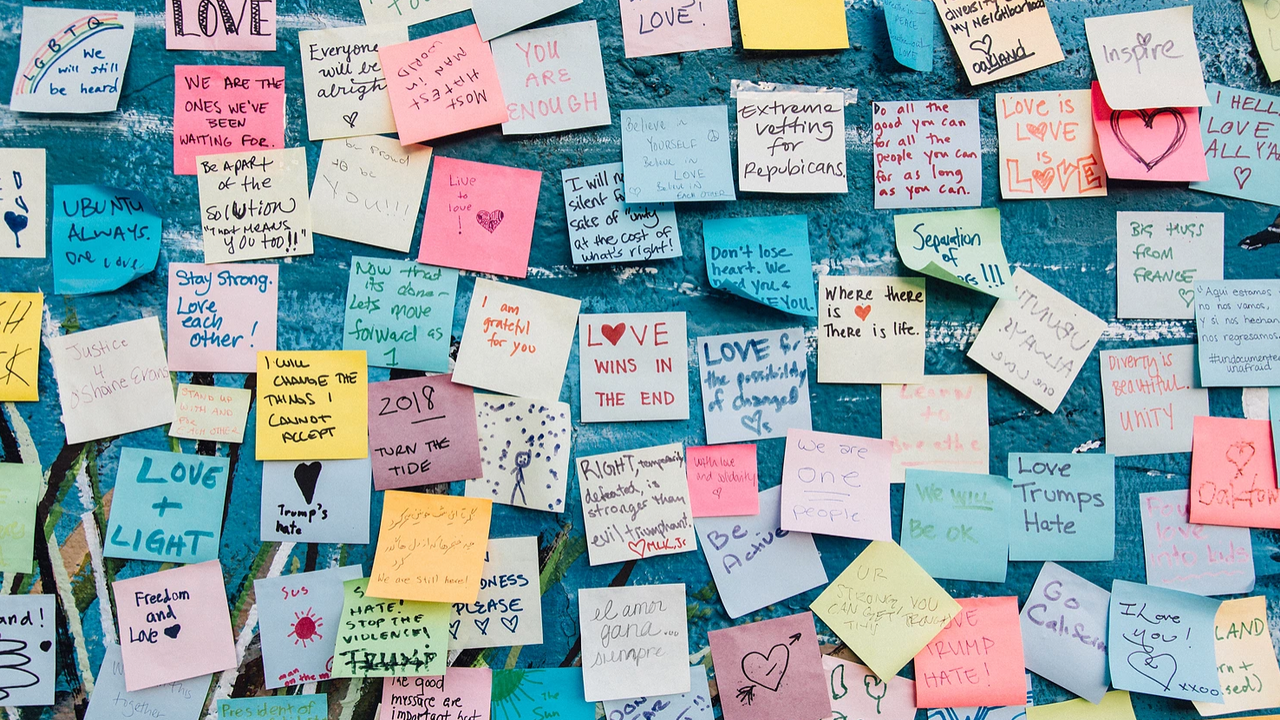 LOVE
LGBTQ
We
will still
be heard
Everyone
will be
alright
MOST
HIGHEST
MAN in
WORLD
YOU
ARE
ENOUGH
LOVE!
diversity
my NEIGHBORHOOD
OAKLAND
Inspire
WE ARE THE
ONES WE'VE
BEEN
WAITING FOR.
Believe in
YOURSELF
Believe in
LOVE
Believe in
EACH OTHER
Extreme
vetting
for
Repubicans.
Do all the
good you can
for all the
people you can
for as long
as you can.
LOVE is
LOVE
is
LOVE
I HELL
LOVE
ALL Y'A
Be A PART
of the
SOLUTION
"THAT MEANS
YOU TOO!!"
be proud
to be
YOU!!!
Live
to
love
!
I will n
silent f
sake of "unity
at the cost of
what's right!
UBUNTU
ALWAYS.
One Love.
Don't lose
heart. We
need you &
WE LOVE YOU.
Separation
of
!!!
BIG HUGS
FROM
FRANCE
Stay Strong.
Love
each
other!
Now that
it's done-
Let's move
forward as
1
I am
grateful
for you
LOVE
WINS IN
THE END
LOVE for
the possibility
of changed
Where there
is
There is life.
UBUNTU
ALWAYS
one love
"Aquí estamos
no nos vamos,
y si nos hechan
nos regresamos.
#undocumente
unafraid
Justice
4
O'Shaine Evans
STAND UP
WITH AND
FOR
EACH OTHER
I WILL
CHANGE THE
THINGS I
CANNOT
ACCEPT
2018
TURN THE
TIDE
Diversity is
BEAUTIFUL.
UNITY
LOVE
+
LIGHT
Trump's
hate
RIGHT temporarily
defeated, is
stronger than
evil triumphant
MLK, Jr
with love
and solidarity
we are
one
people
Be
Active
We WILL
Be OK
Love
Trumps
Hate
Oakton
We are still here!
NDNESS
PLEASE
Freedom
and
Love
Sus
man on the m
HATE!
STOP THE
VIOLENCE!
TRUMP
el amor
gana...
siempre
UR
STRONG, YOU
CAN GET THROUGH
THIS
LOVE
TRUMP
HATE!
Go
Californ
I Love
You!
xxoo
LAND
and!
together
President of
the good
message are
important but
The
Sun